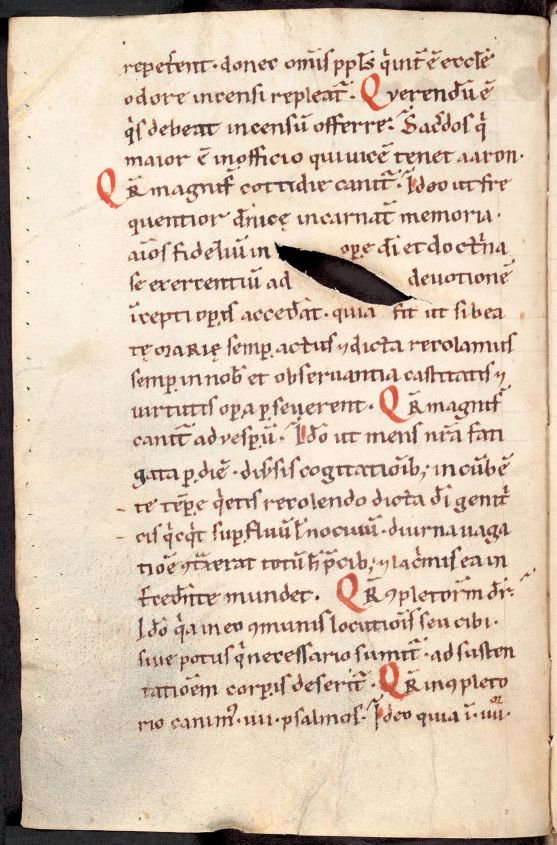 repetent · donec omīs ppls q̇ int̄ ē eccłe
odore incensi repleat̄ · Querendū ē
q̇s debeat incensū offerre · Sac̄dos q̇
maior ē in officio qui vicē tenet aaron ·
Qr̄ magnif̄ cottidie canit̄ · Ideo ut fre
quentior dn̄icę incarnat̄ memoria ·
aīos fideliū in opę dī et doctⁱna
se exercentiū ad devotionē
īcepti opīs accedat · quia fit ut si bea
tę MARIĘ semp̄ actus ⁊ dicta recolamus
semp̄ in nob̄ et observantia castitatis ⁊
virtutis opa pseverent · Qr̄ magnif̄
canit̄ ad vesp̄ū · Id̄o ut mens nr̄a fati
gata p diē · div̄sis cogitationib; incūbē
te tēpe q̇etis recolendo dicta dī genit̄
cis q̇cq̇t supfluū ł nocuū · diurna vaga
tiōe ꝯtxerat totū h̄ p̄cib; ⁊ lac̄mis ea in
t̄cedn̄te mundet · Qr̄ ꝯpletoriū dr̄ ·
Id̄o q̇a in eo ꝯmunis locutiōis seu cibi ·
sive potus q̇ necessario sumit̄ · ad susten
tationem corpis deserit̄ · Qr̄ in ꝯpleto
rio canim᷒ · iiii · psalmos · Ideo quia ī · iiiior ·